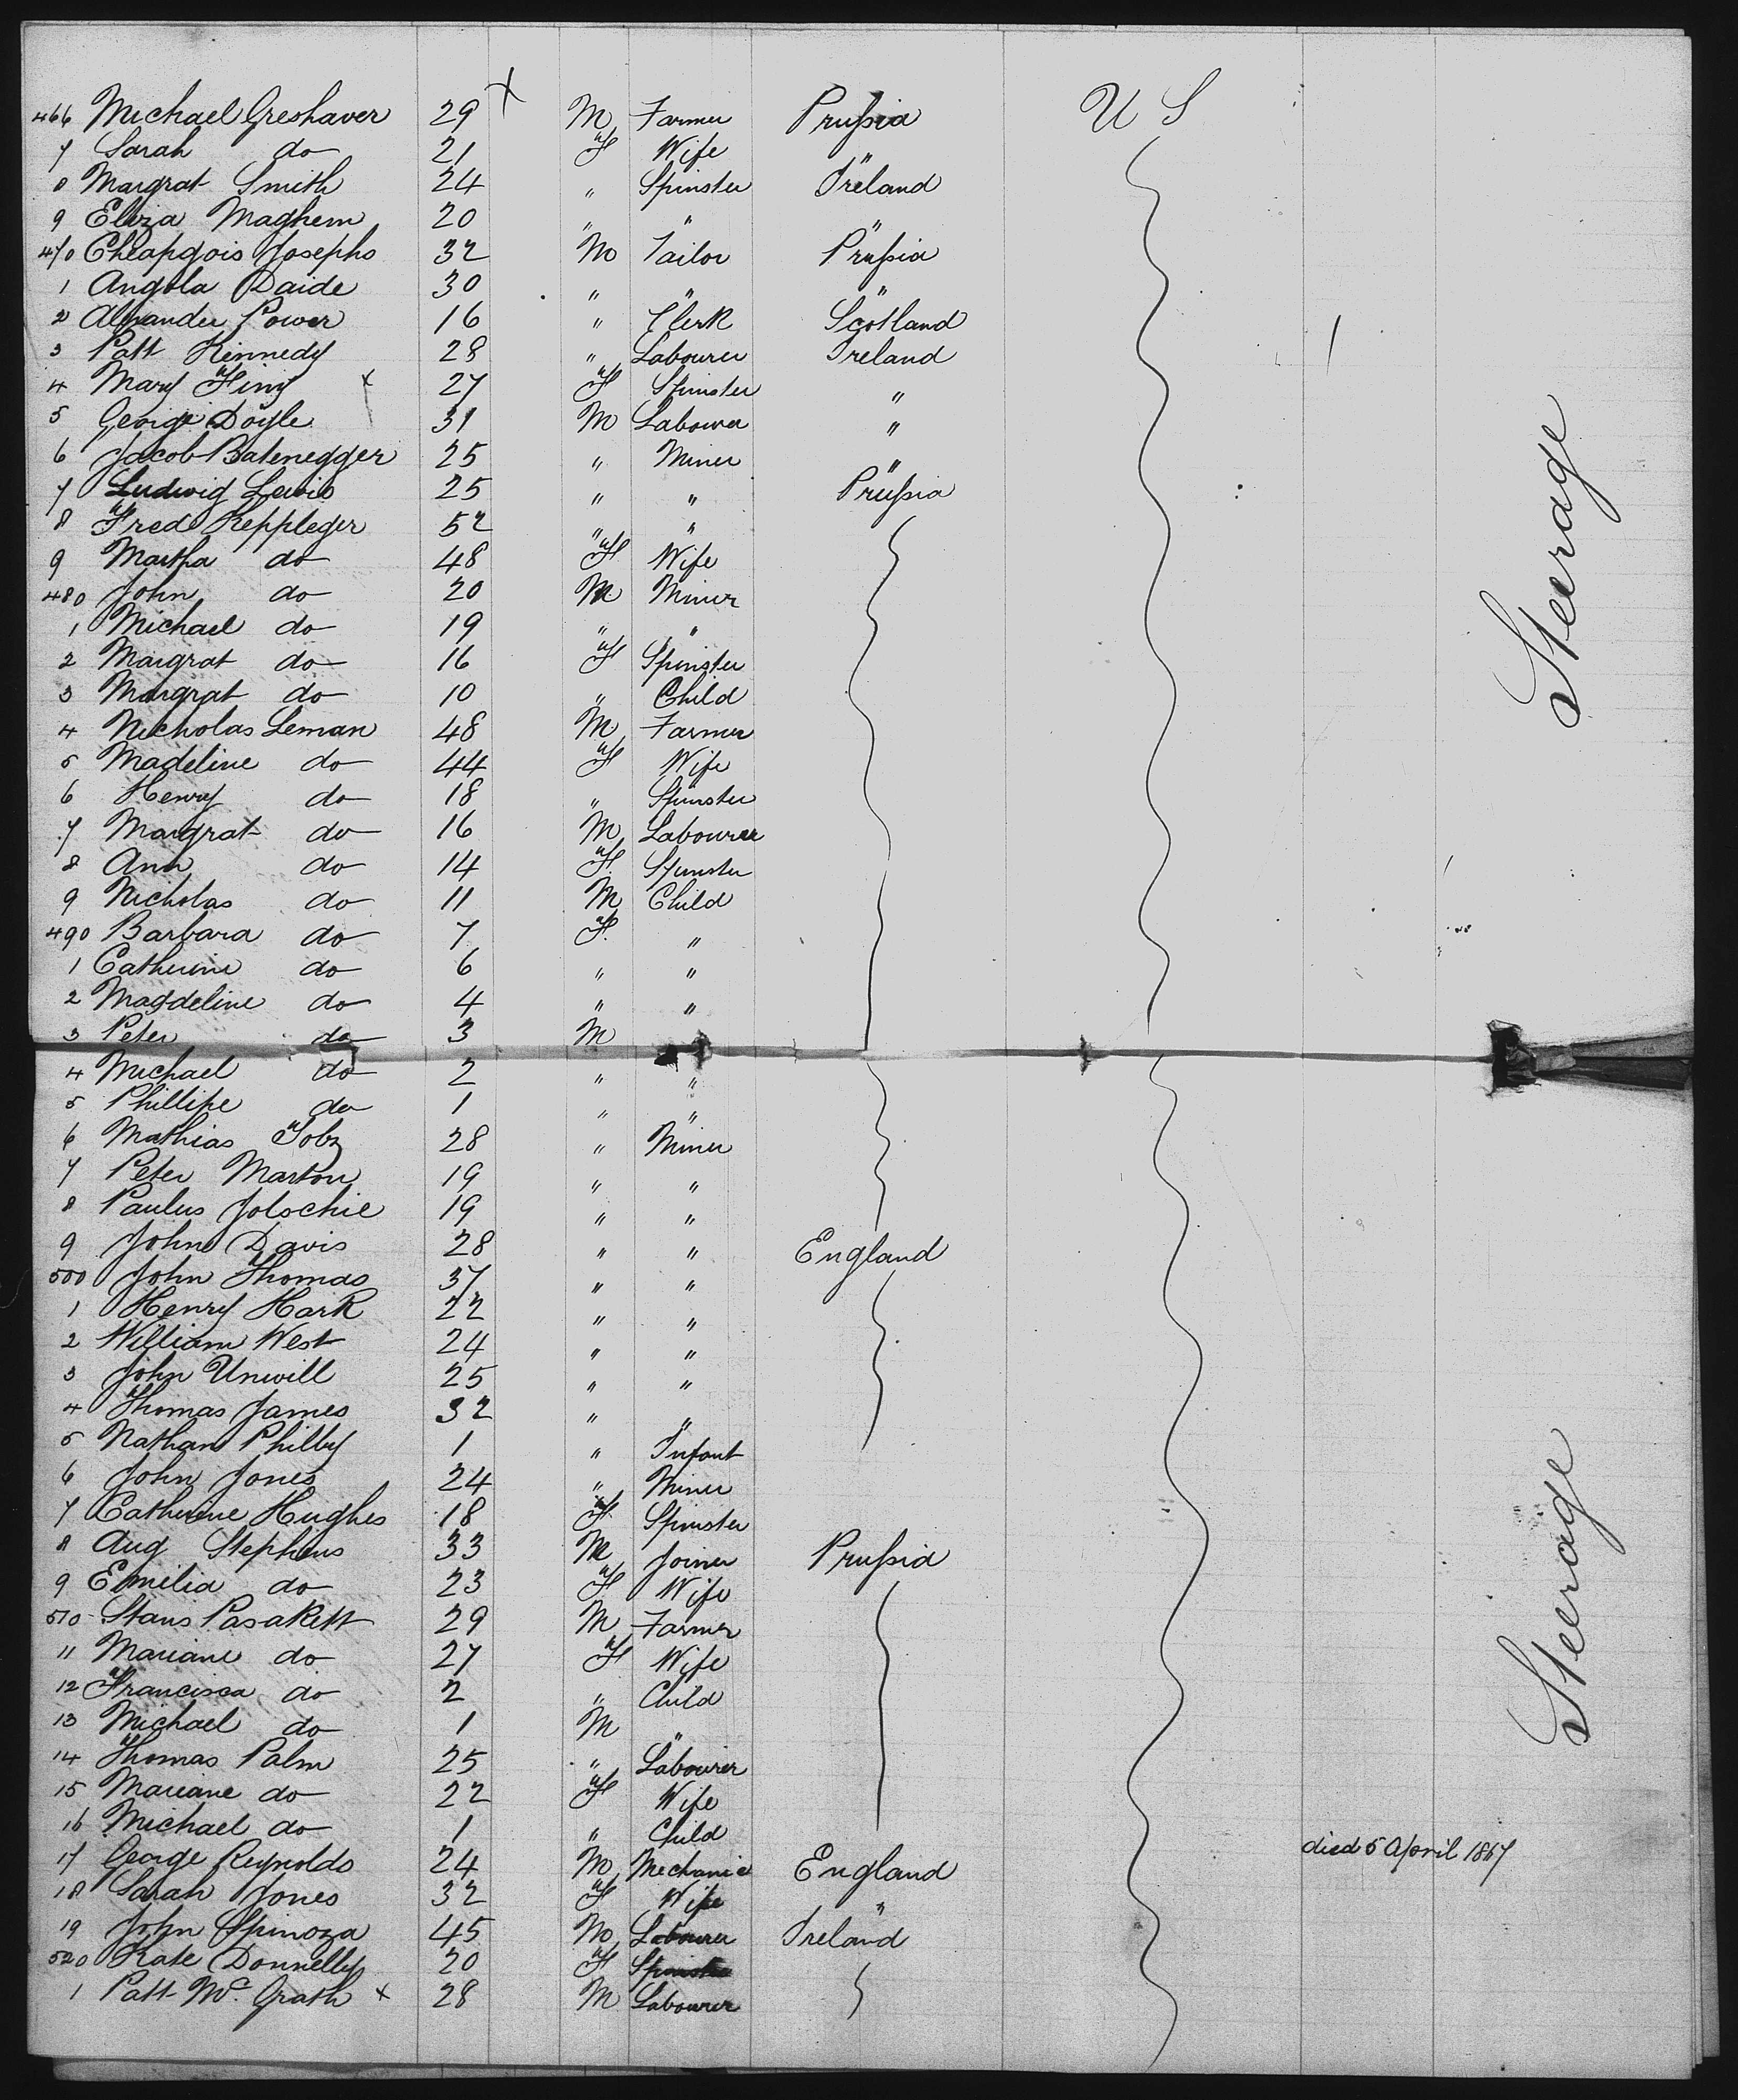 466 Michael Greshaver 29 X M Farmer Prussia U S
7 Sarah do 21 F Wife "
8 Margrat Smith 24 " Spinster Ireland
9 Eliza Maghem 20 " " "
470 Cheapgois Josepho 32 M Tailor Prussia
1 Angola Daide 30 " " "
2 Alexander Power 16 " Clerk Scotland
3 Patt Kennedy 28 " Labourer Ireland
4 Mary Finy x 27 F Spinster "
5 George Doyle 31 M Labourer "
6 Jacob Batenegger 25 " Miner "
7 Ludwig Lewis 25 " " Prussia
8 Fred Keppleger 52 " "
9 Martha do 48 F Wife
480 John do 20 M Miner
1 Michael do 19 " "
2 Margrat do 16 F Spinster
3 Margrat do 10 " Child
4 Nicholas Leman 48 M Farmer
5 Madeline do 44 F Wife
6 Henry do 18 " Spinster
7 Margrat do 16 M Labourer
8 Ann do 14 F Spinster
9 Nicholas do 11 M Child
490 Barbara do 7 F "
1 Catherine do 6 " "
2 Magdeline do 4 " "
3 Peter do 3 M
4 Michael do 2 " "
5 Phillipe do 1 " "
6 Mathias Tobz 28 " Miner
7 Peter Marton 19 " "
8 Paulus Jolschie 19 " "
9 John Davis 28 " " England
500 John Thomas 37 " "
1 Henry Hark 22 " "
2 William West 24 " "
3 John Unwill 25 " "
4 Thomas James 32 " "
5 Nathan Philby 1 " Infant
6 John Jones 24 " Miner
7 Catherine Hughes 18 F Spinster
8 Aug Stephens 33 M Joiner Prussia
9 Emilia do 23 F Wife
510 Stans Pasakett 29 M Farmer
11 Mariane do 27 F Wife
12 Francisca do 2 " Child
13 Michael do 1 M "
14 Thomas Palm 25 " Labourer
15 Mariane do 22 F Wife
16 Michael do 1 " Child
17 George Reynolds 24 M Mechanic England died 5 April 1867
18 Sarah Jones 32 F Wife "
19 John Spinoza 45 M Labourer Ireland
520 Kate Donnelly 20 F Spinster
1 Patt Mc Grath x 28 M Labourer
Steerage
Steerage